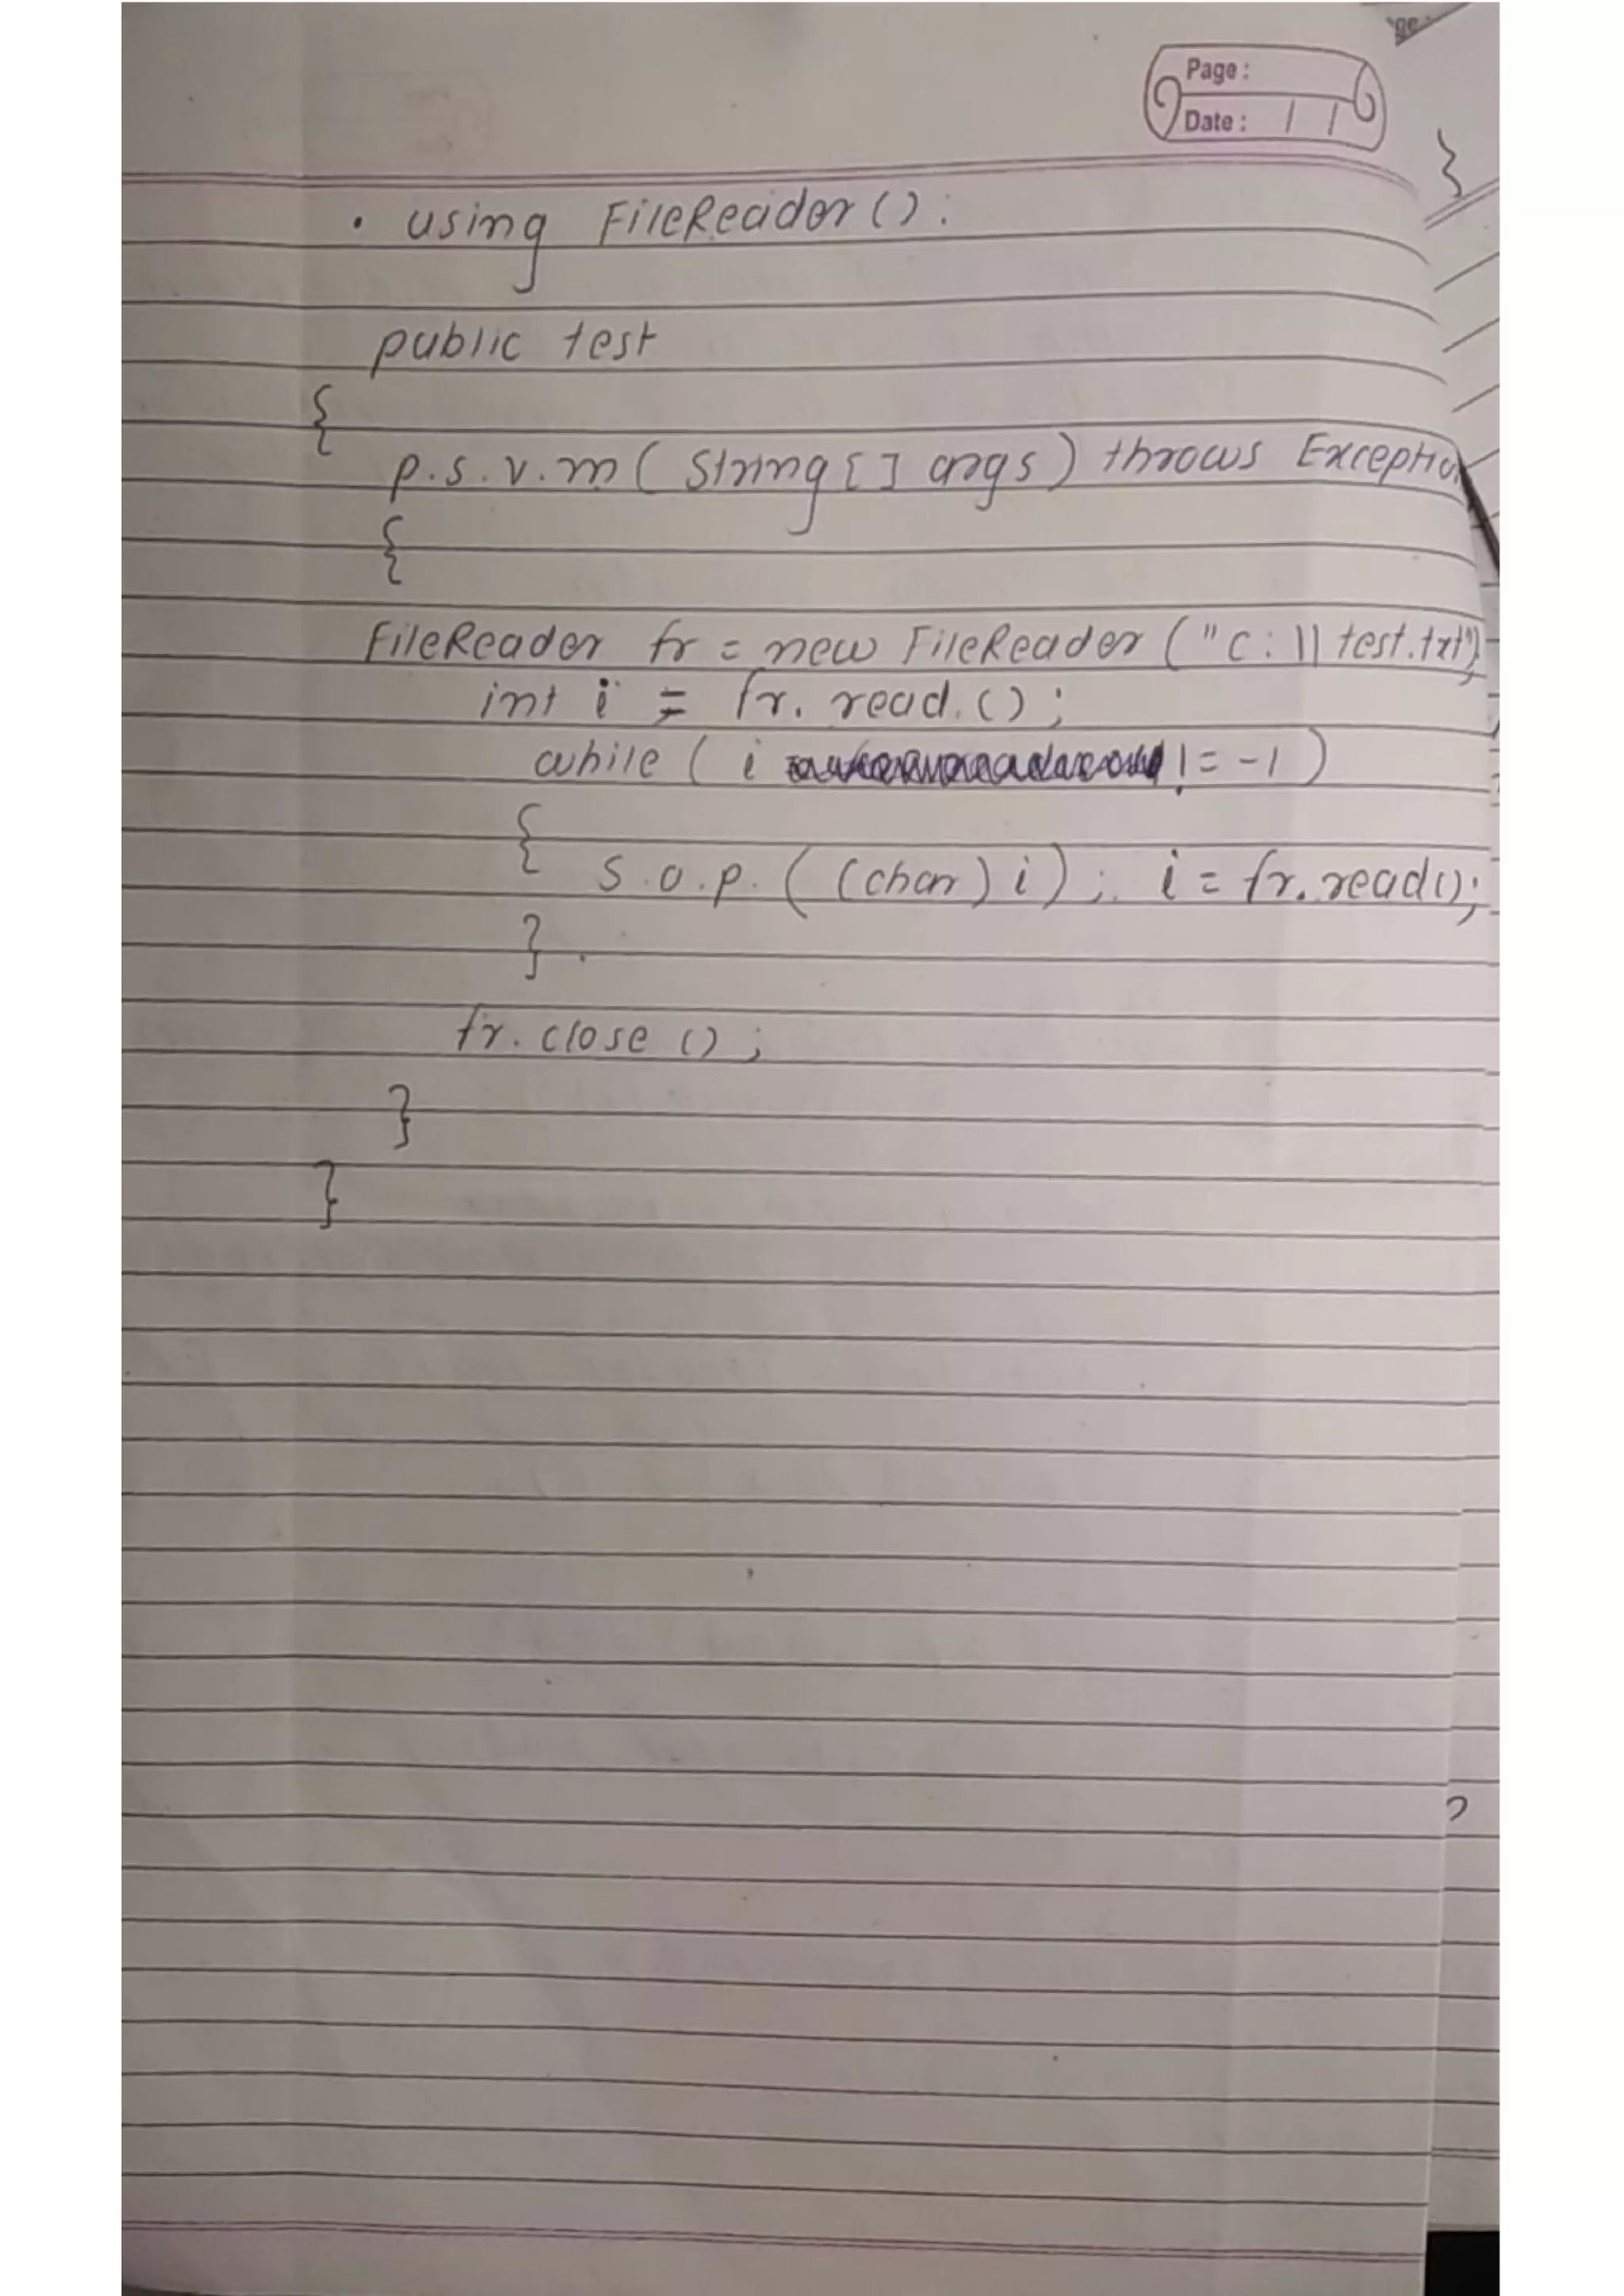 ge:
Page:
Date: / /
}
• using FileReader():
public test
{
p.s.v.m( String[] args) throws Exception
{
FileReader fr = new FileReader("C:\\test.txt");
int i = fr.read.();
while ( i != -1 )
{
S.o.p.((char) i); i = fr.read();
}
fr.close ();
}
}